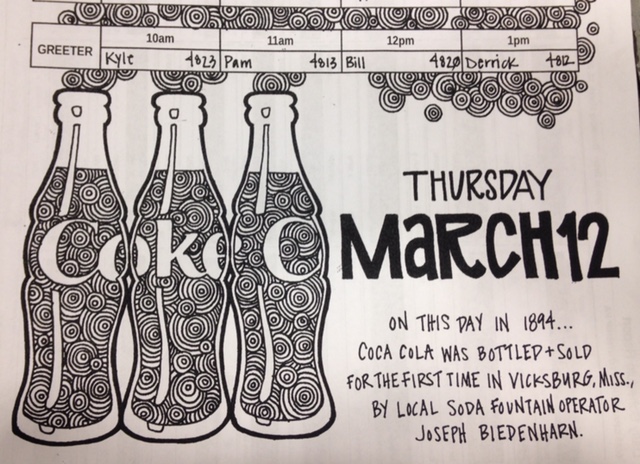 10am 11am 12pm 1pm
GREETER Kyle 4823 Pam 4813 Bill 4820 Derrick 4812
Coke C
THURSDAY
MaRCH 12
ON THIS DAY IN 1894...
COCA COLA WAS BOTTLED + SOLD
FOR THE FIRST TIME IN VICKSBURG, MISS.,
BY LOCAL SODA FOUNTAIN OPERATOR
JOSEPH BIEDENHARN.